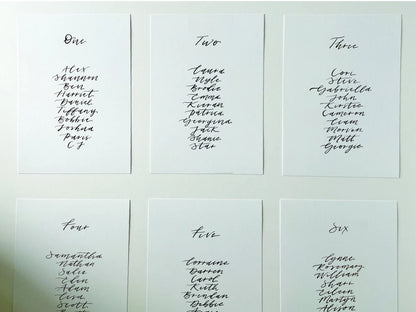 One
Alex
Shannon
Ben
Harriet
Daniel
Tiffany
Bobbie
Joshua
Paris
CJ
Two
Laura
Kyle
Brodie
Emma
Kieran
Patrica
Georgina
Jack
Shanie
Star
Three
Cori
Steve
Gabriella
John
Kirstie
Cameron
Liam
Morven
Matt
Georgie
Four
Samantha
Nathan
Sadie
Eden
Adam
Lisa
Scott
Five
Lorraine
Darren
Carol
Keith
Brendan
Debbie
Six
Lynne
Rosemary
William
Shari
Eileen
Martyn
Alison